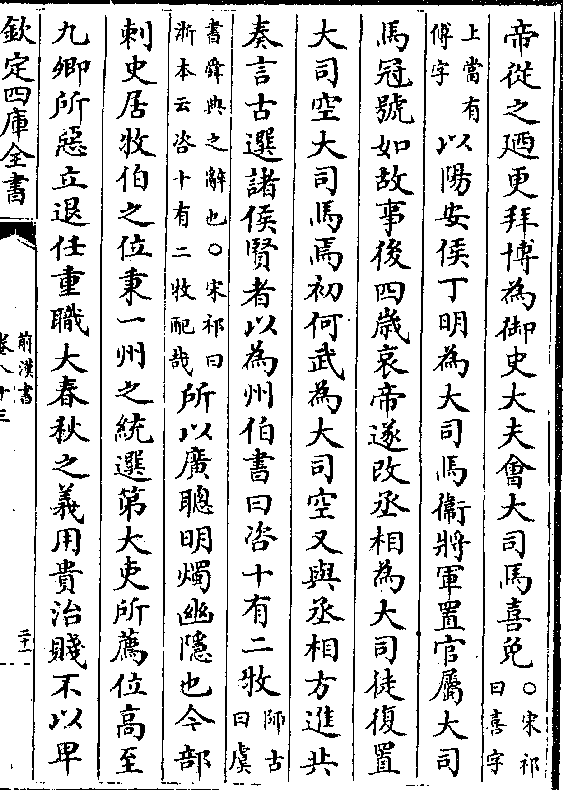 帝從之廼更拜博為御史大夫會大司馬喜免○宋祁曰喜字
上當有傅字以陽安侯丁明為大司馬衞將軍置官屬大司
馬冠號如故事後四歲哀帝遂改丞相為大司徒復置
大司空大司馬焉初何武為大司空又與丞相方進共
奏言古選諸侯賢者以為州伯書曰咨十有二牧師古曰虞
書舜典之辭也○宋祁曰浙本云咨十有二牧配哉所以廣聰明燭幽隱也今部
刺史居牧伯之位秉一州之統選第大吏所薦位高至
九卿所惡立退任重職大春秋之義用貴治賤不以卑
欽定四庫全書
前漢書
卷八十三
二十